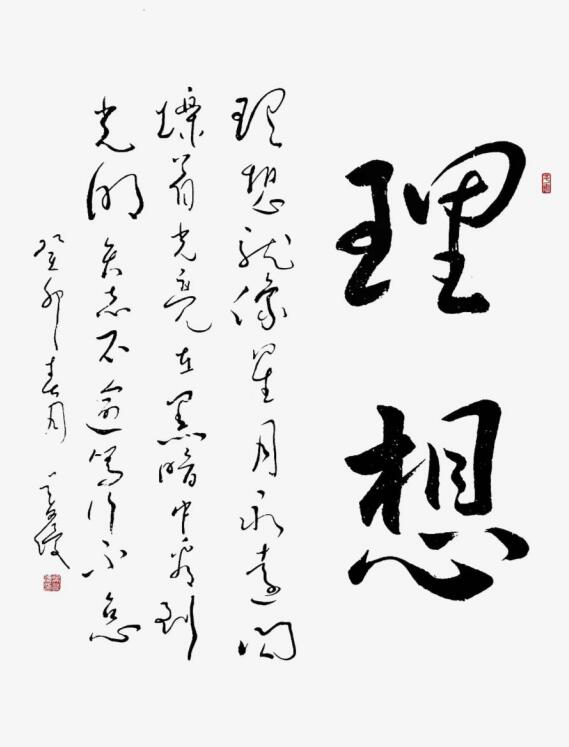 理想
理想就像星月永远闪
烁着光亮在黑暗中看到
光明矢志不逾笃行不怠
癸卯春月